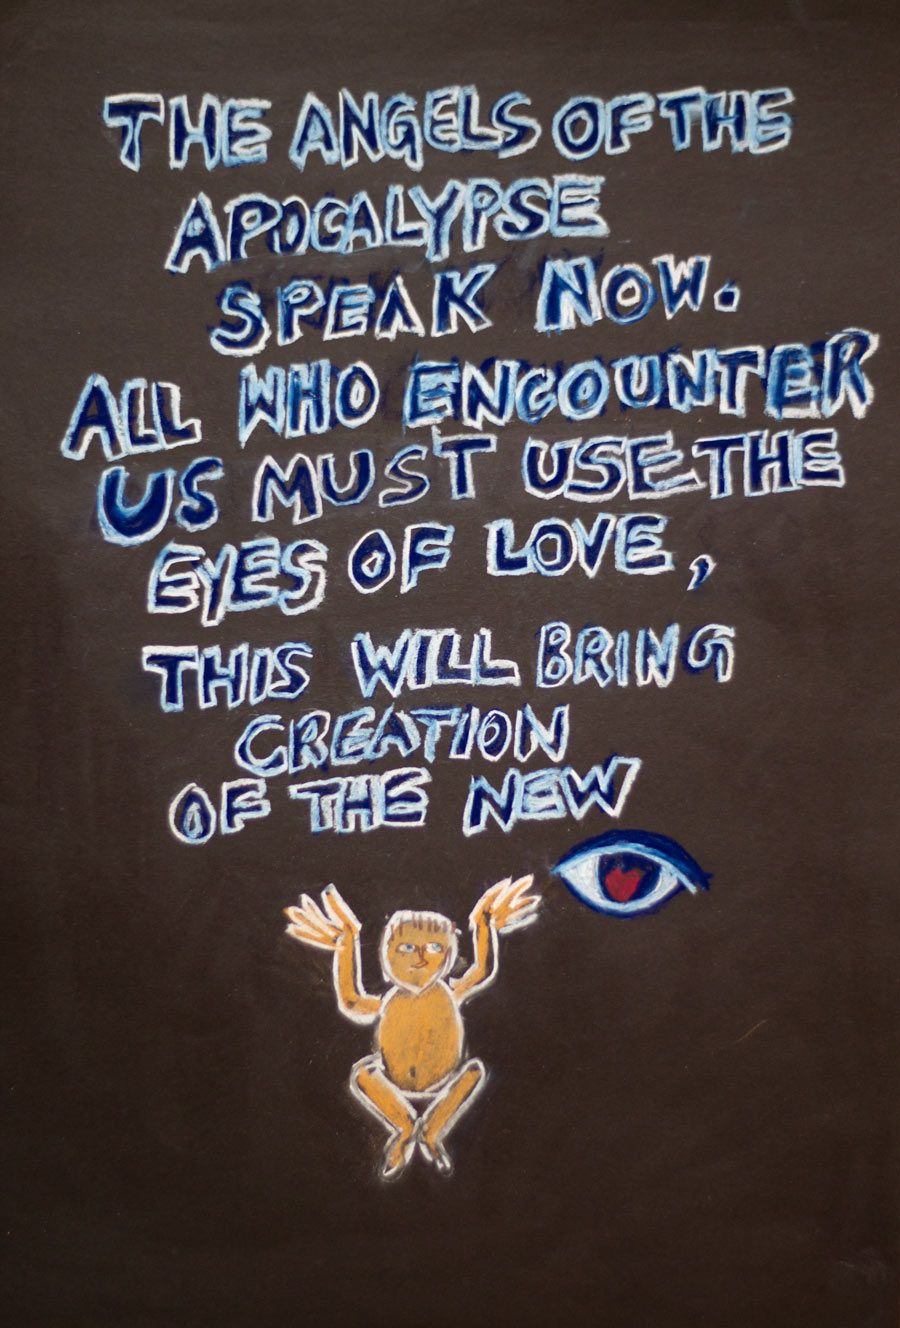 THE ANGELS OF THE
APOCALYPSE
SPEAK NOW.
ALL WHO ENCOUNTER
US MUST USE THE
EYES OF LOVE,
THIS WILL BRING
CREATION
OF THE NEW